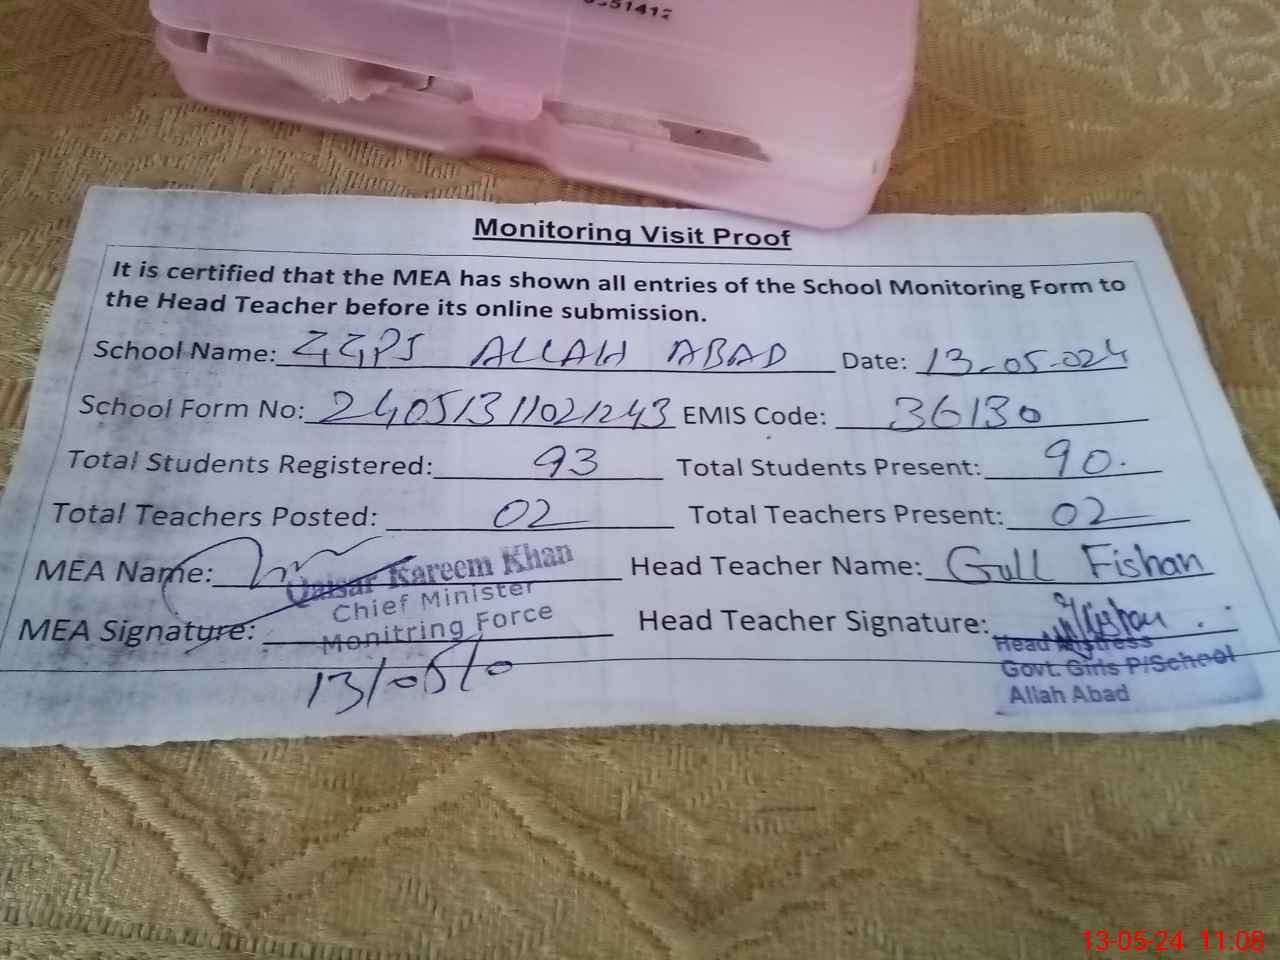 51412
Monitoring Visit Proof
It is certified that the MEA has shown all entries of the School Monitoring Form to
the Head Teacher before its online submission.
School Name: GGPS ALLAH ABAD Date: 13-05-024
School Form No: 24051311021243 EMIS Code: 36130
Total Students Registered: 93 Total Students Present: 90.
Total Teachers Posted: 02 Total Teachers Present: 02
MEA Name: Qaisar Kareem Khan Head Teacher Name: Gull Fishan
Chief Minister
MEA Signature: Monitring Force Head Teacher Signature:
Head Mistress
Govt. Girls P/School
Allah Abad
13/05/0
13-05-24 11:08